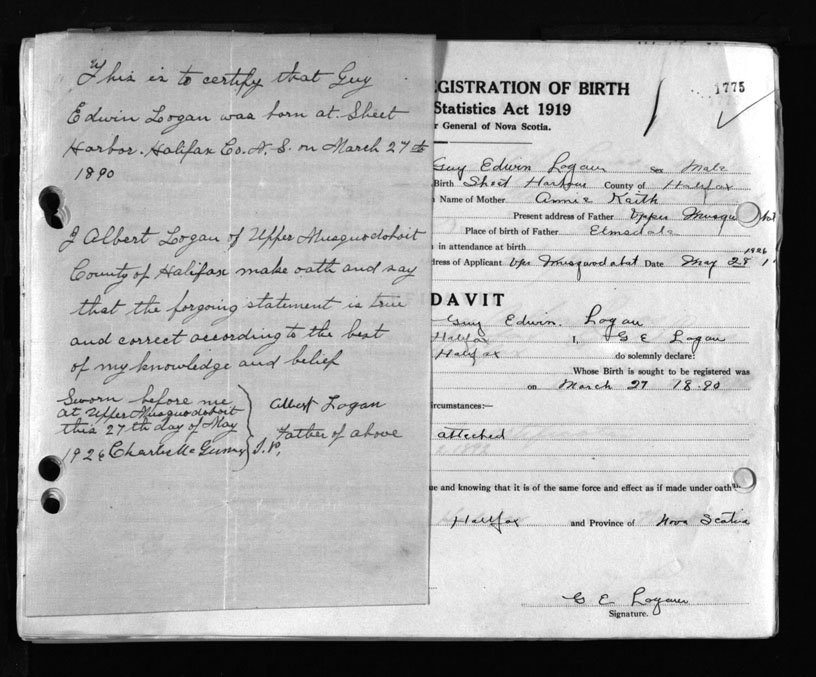 This is to certify that Guy
Edwin Logan was born at Sheet
Harbor. Halifax Co. N. S. on March 27th
1890
I Albert Logan of Upper Musquodoboit
County of Halifax make oath and say
that the forgoing statement is true
and correct according to the best
of my knowledge and belief
Sworn before me
at Upper Musquodoboit
this 27th day of May
1926
J.P.
Albert Logan
Father of above
EGISTRATION OF BIRTH
1775
Statistics Act 1919
r General of Nova Scotia.
Guy Edwin Logan Sex Male
Birth Sheet Harbour County of Halifax
Name of Mother Annie Keith
Present address of Father Upper Musqu
Place of birth of Father Elmsdale
in attendance at birth
1926
ress of Applicant Upr Musquodobat Date May 28
DAVIT
Guy Edwin. Logan
Halifax I, G E Logan
Halifax do solemnly declare:
Whose Birth is sought to be registered was
on March 27 1890
ircumstances:—
attached
ue and knowing that it is of the same force and effect as if made under oath
Halifax and Province of Nova Scotia
G E Logan
Signature.